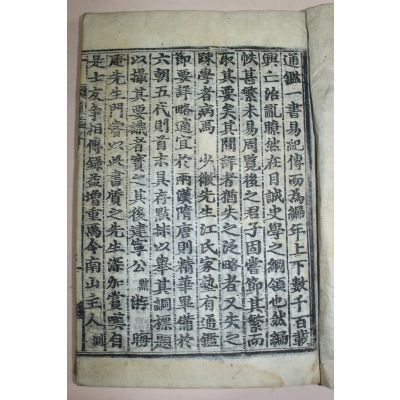 通鑑一書易紀傳而爲編年上下數千百載
興亡治亂瞭然在目誠史學之綱領也然編
帙甚繁未易周覽後之君子固嘗節其繁而
取其要矣其間詳者猶失之泛略者又失之
踈學者病焉 少微先生江氏家塾有通鑑
節要詳略適宜於兩漢隋唐則精華畢備於
六朝五代則首末具存點抹以舉其綱標題
以撮其要識者寶之其後建寧公黙游晦
庵先生門嘗以此書質之先生深加賞嘆自
是士友爭相傳錄益增重焉今南山主人淵